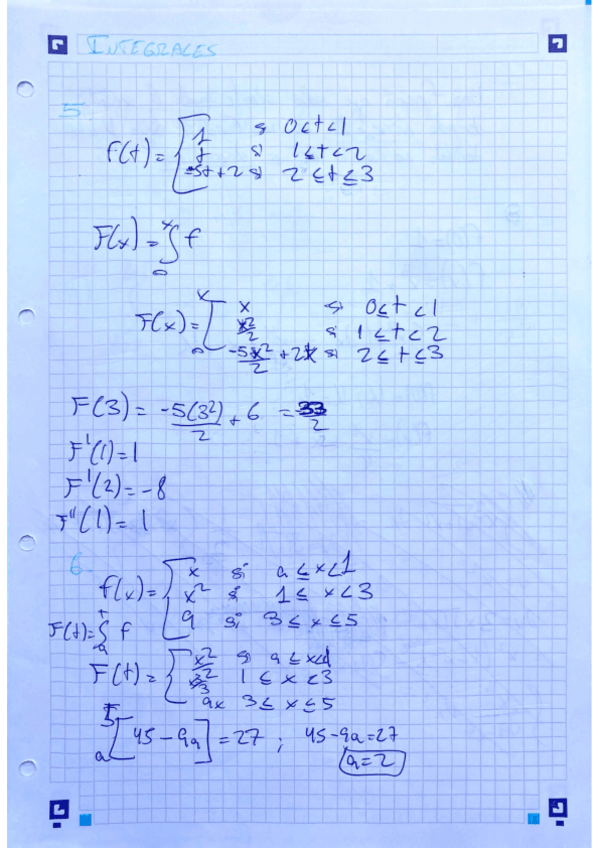 INTEGRALES
5
f(t) = { 1 si 0<t<1
t si 1≤t<2
-5t+2 si 2≤t≤3
F(x) = ∫₀ˣ f
F(x) = [ x si 0≤t<1
x²/2 si 1≤t<2
-5x²/2 + 2x si 2≤t≤3
F(3) = -5(3²)/2 + 6 = -33/2
F'(1)=1
F'(2)=-8
F''(1)=1
6.
f(x) = { x si a≤x<1
x² si 1≤x<3
9 si 3≤x≤5
F(t)=∫ₐᵗ f
F(t) = { x²/2 si a≤x<1
x³/3 1≤x<3
9x 3≤x≤5
ₐ⁵[45-9a] = 27 ; 45-9a=27
a=2